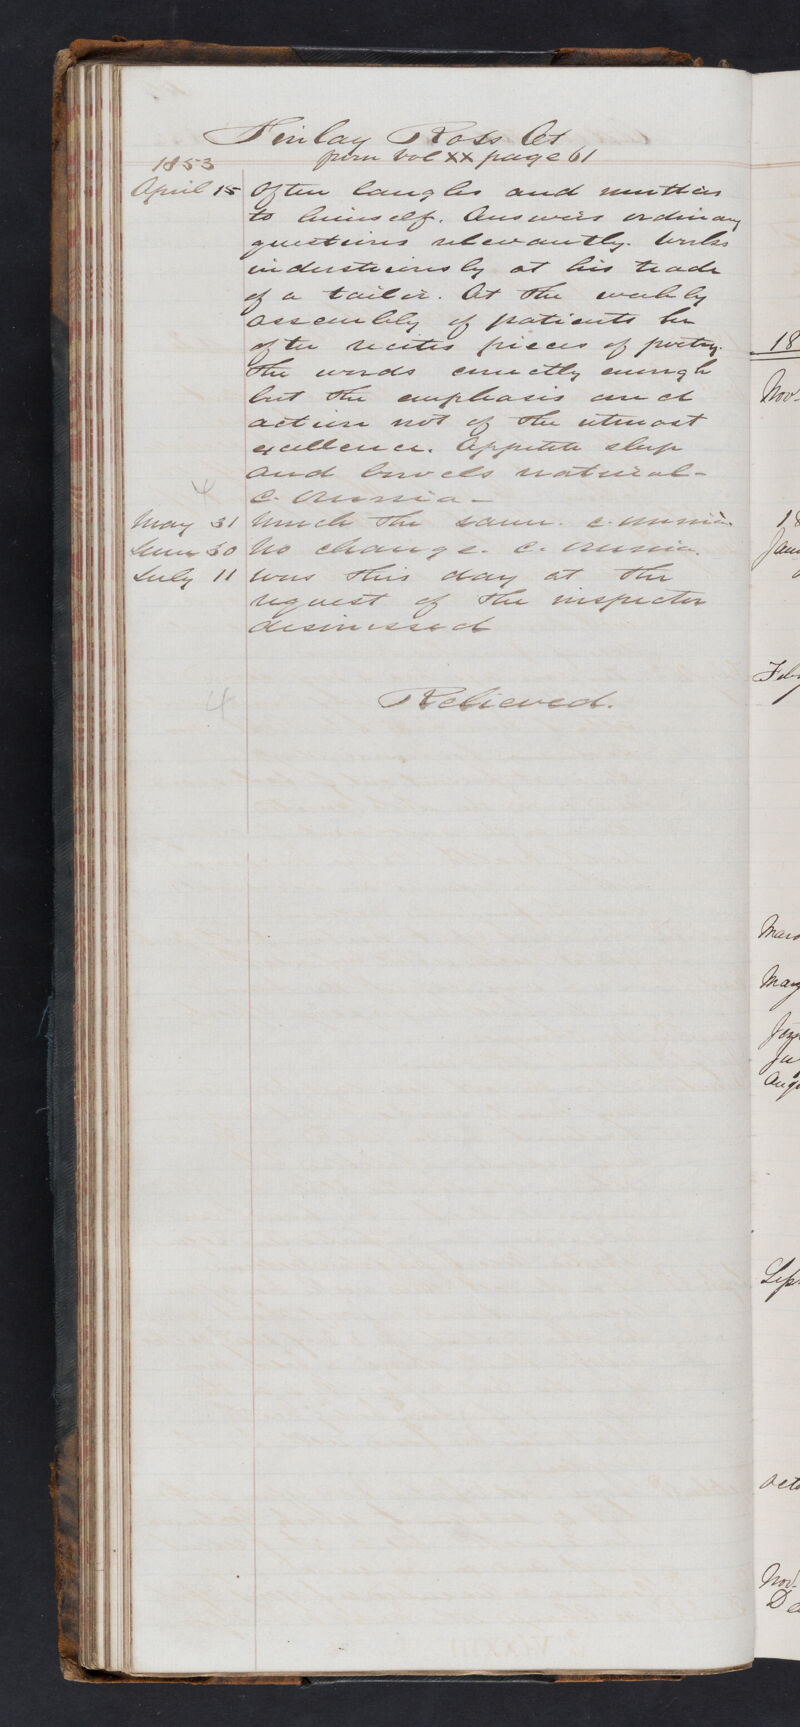 Finlay Ross
from Vol XX page 61
1853
April 15 Often laughs and mutters
to himself. Answers ordinary
questions relevantly. Works
industriously at his trade
of a tailor. At the weekly
assembly of patients he
often recites pieces of poetry.
The words correctly enough
but the emphasis and
action not of the utmost
excellence. Appetite sleep
and bowels natural -
4
C. Omnia -
May 31 Much the same. C. omnia.
June 30 No change. C. Omnia.
July 11 Was this day at the
request of the inspector
dismissed
4 Relieved.
18
Nov.
18
Feb
Mar
May
Ju
Aug
Sep
Octo
Nov.
De